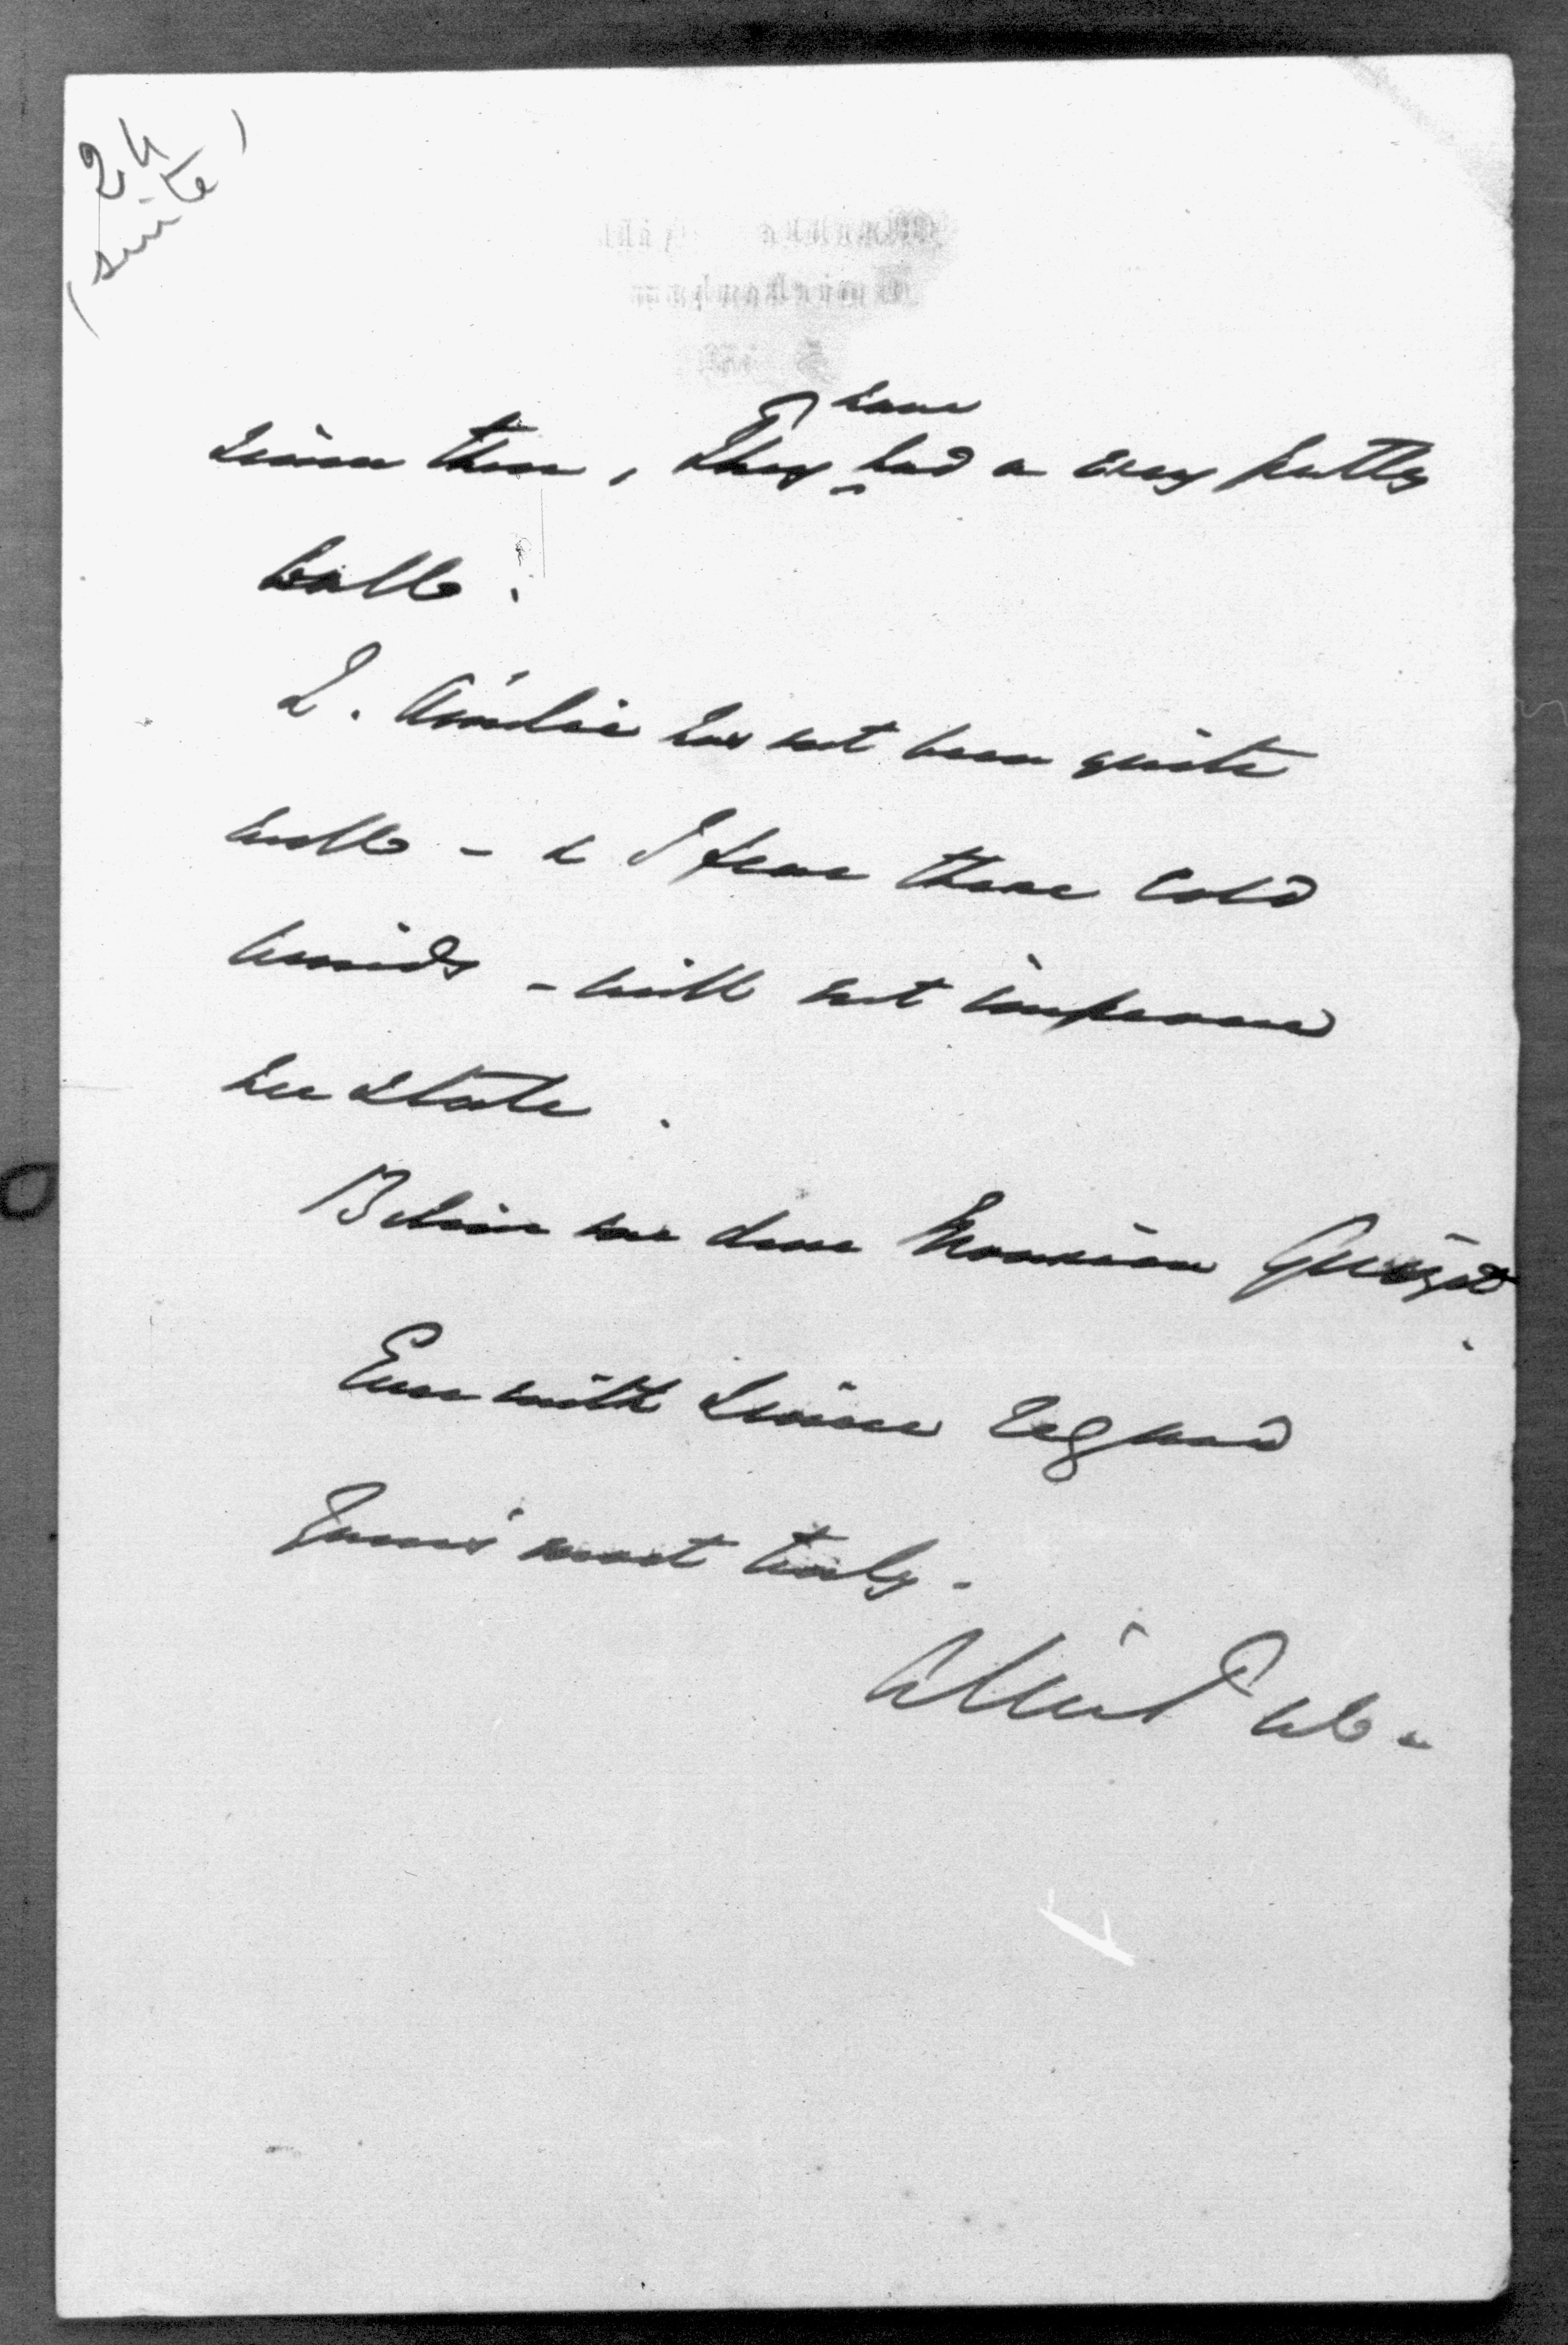 24
(suite)
have
since then, They had a very pretty
ball.
L. Ainslie has not been quite
well - & I fear these cold
winds - will not improve
her state.
Believe me dear Monsieur Guizot
Ever with sincere regard
Yours most truly.